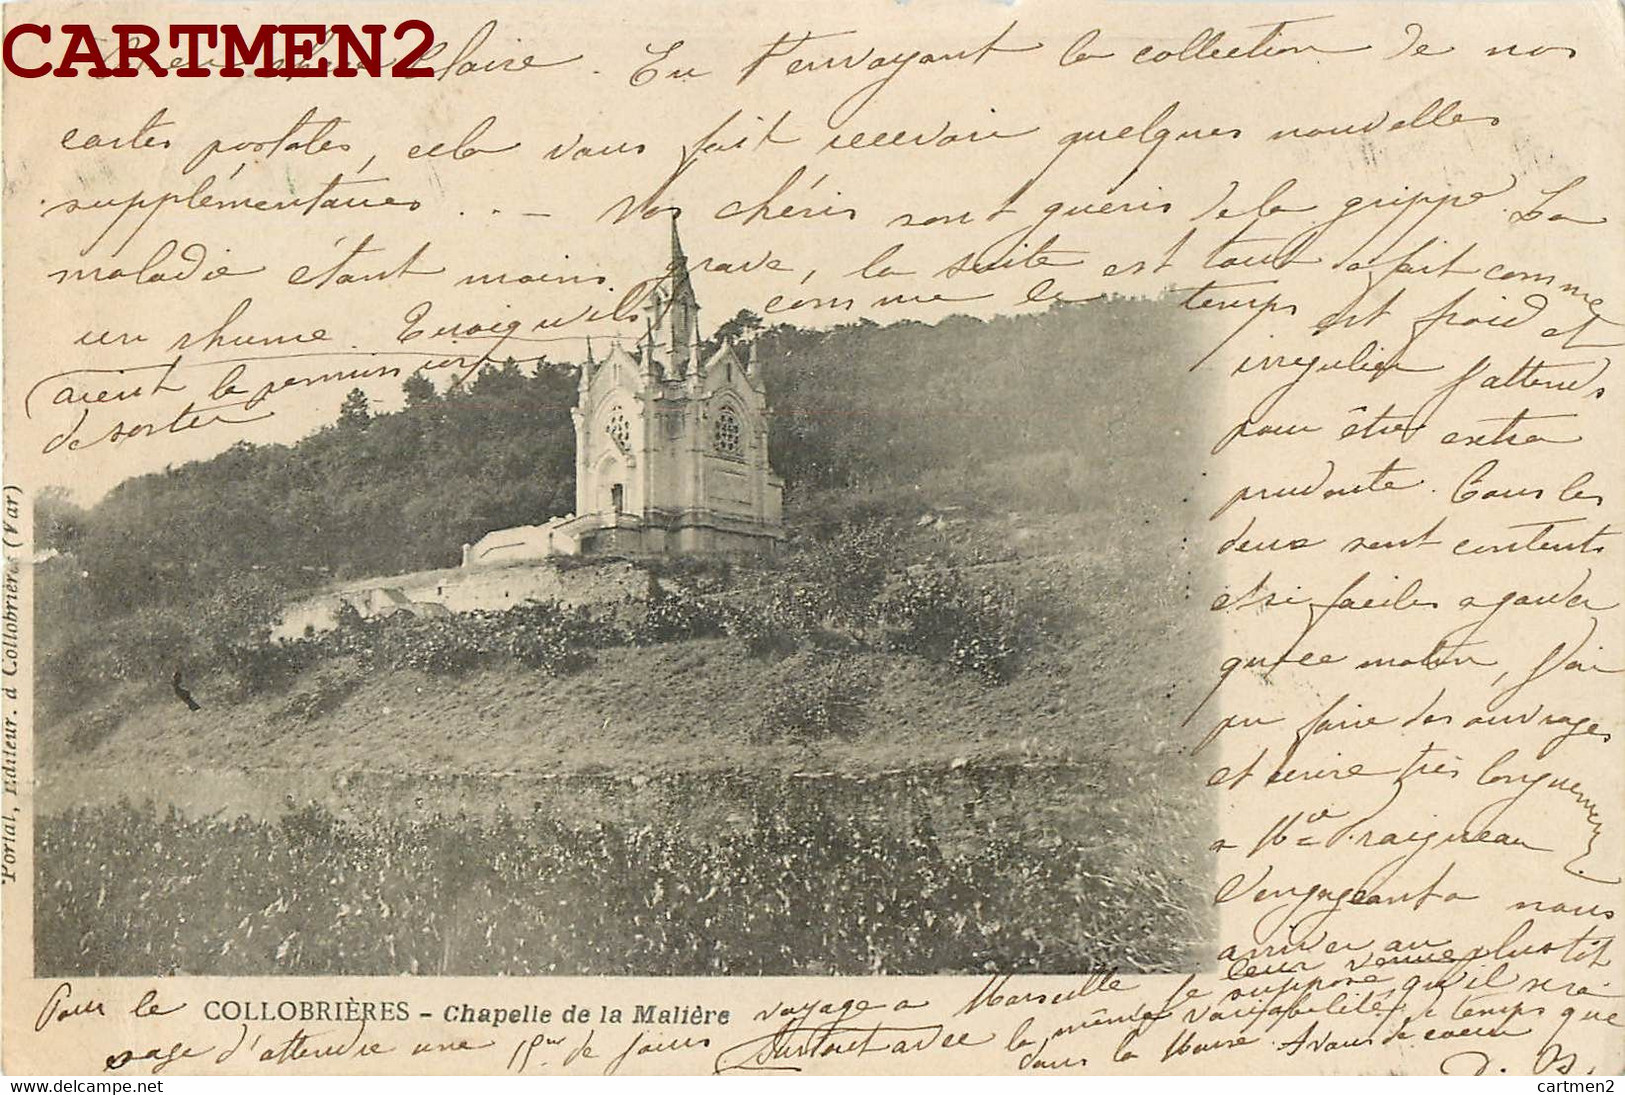 CARTMEN2
Claire. En t'envoyant la collection de nos
cartes postales, cela vous fait recevoir quelques nouvelles
supplémentaires . . — Vos chéris sont guéris de la grippe. La
maladie étant moins grave, la suite est tout à fait comme
un rhume. Quoiqu'ils
aient la permission
de sortir
comme le temps
est froid et
irrégulier j'attends
pour être extra
prudente. Tous les
deux sont contents
et si faciles a garder
que ce matin, j'ai
pu faire des ouvrages
et écrire très longuement
a Mme Praigneau
L'engageant a nous
arriver au plus tôt
Pour le voyage a Marseille, je suppose qu'il sera
sage d'attendre une 15ne de jours
Surtout avec la même variabilité de temps que
leur venue
dans la Marne. A vous de coeur
D. B.
COLLOBRIÈRES - Chapelle de la Malière
Portal, Editeur. à Collobrières (Var)
cartmen2